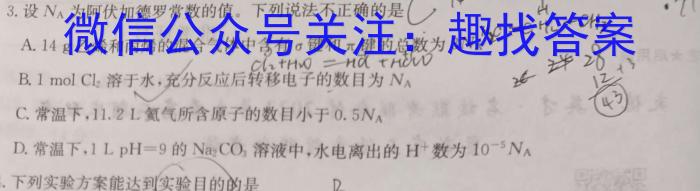 3. 设 NA 为阿伏加德罗常数的值。下列说法不正确的是
微信公众号关注：趣找答案
A. 14 g 和 的混合气体中含有σ键和π键的总数为
Cl₂+H₂O = HCl + HClO
B. 1 mol Cl₂ 溶于水,充分反应后转移电子的数目为 NA
43
C. 常温下,11.2 L 氦气所含原子的数目小于 0.5NA
D. 常温下,1 L pH=9 的 Na₂CO₃ 溶液中,水电离出的 H⁺数为 10⁻⁵NA
下列实验方案能达到实验目的的是